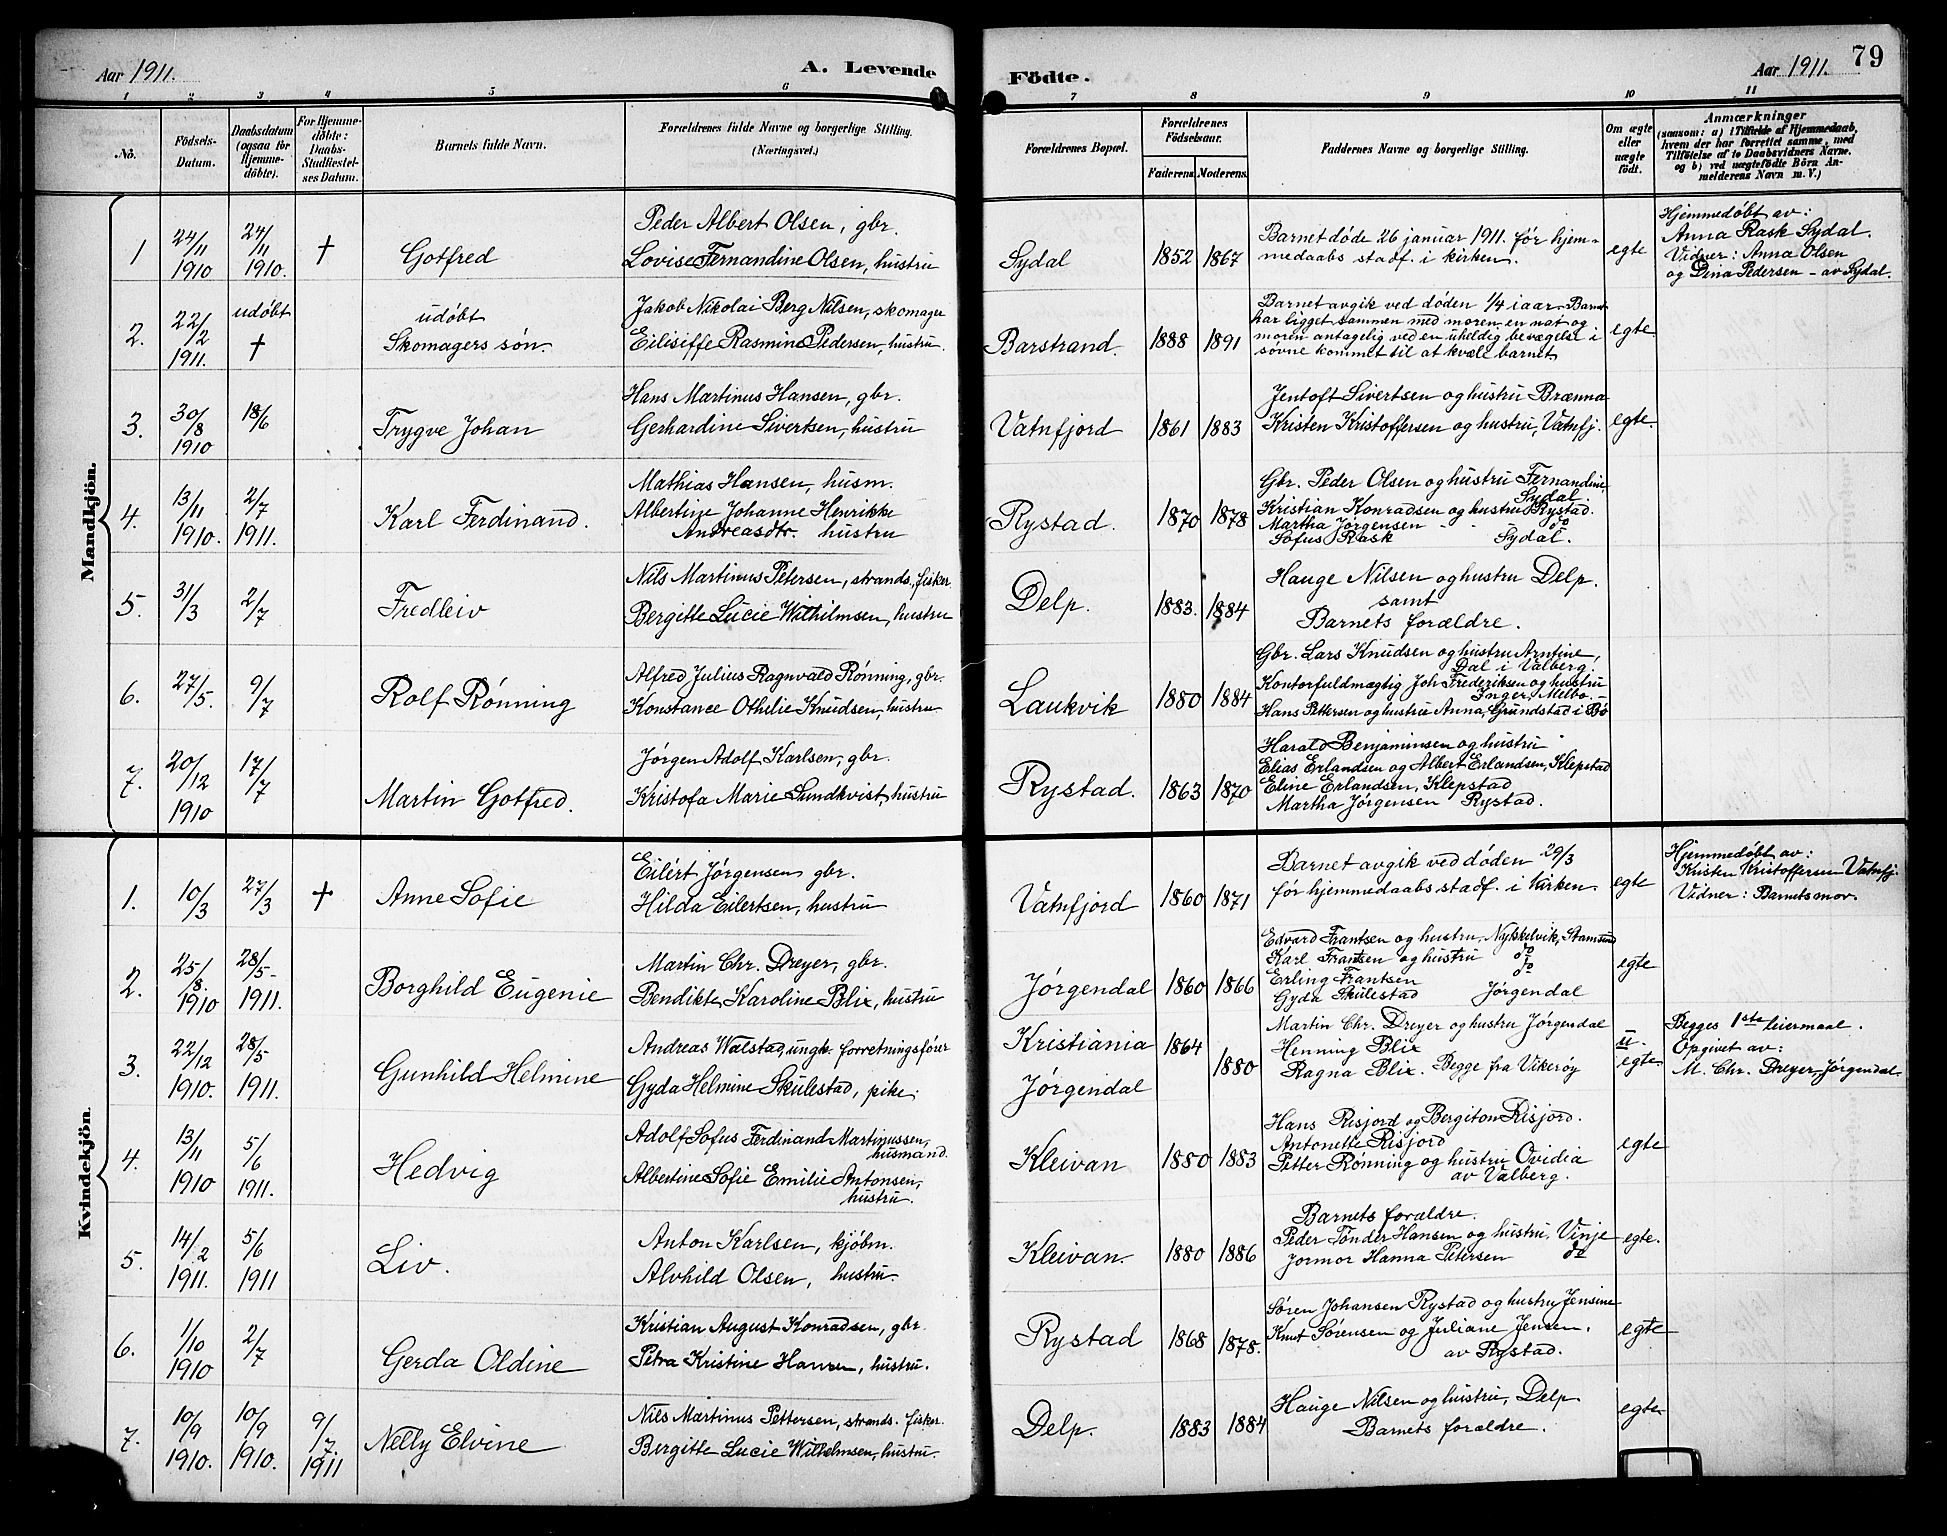 Aar 1911.
A. Levende
Födte.
Aar 1911.
79
1 2 3 4 5 6 7 8 9 10 11
No.
Födsels-
Datum.
Daabsdatum
(ogsaa for
Hjemme-
döbte).
For Hjemme-
döbte:
Daabs-
Stadfæstel-
ses Datum.
Barnets fulde Navn.
Forældrenes fulde Navne og borgerlige Stilling.
(Næringsvei.)
Forældrenes Bopæl.
Forældrenes
Födselsaar.
Faderens.
Moderens.
Faddernes Navne og borgerlige Stilling.
Om ægte
eller
uægte
födt.
Anmærkninger
(saasom: a) i Tilfælde af Hjemmedaab,
hvem der har forrettet samme, med
Tilföielse af to Daabsvidners Navne.
og b) ved uægtefödte Börn An-
melderens Navn m. V.)
Mandkjön.
1
24/11
1910
24/11
1910.
†
Gotfred
Peder Albert Olsen, gbr.
Lovise Fernandine Olsen, hustru
Sydal
1852
1867
Barnet døde 26 januar 1911. før hjem-
medaabs stadf. i kirken.
egte
Hjemmedøbt av:
Anna Rask Sydal.
Vidner: Anna Olsen
og Dina Pedersen – av Sydal.
2.
22/2
1911.
udøbt
†
udøbt
Skomagers søn.
Jakob Nikolai Berg Nilsen, skomager
Eilisiffe Rasmine Pedersen, hustru.
Barstrand.
1888
1891
Barnet avgik ved døden 1/4 i aar. Barnet
har ligget sammen med moren en nat og
moren antagelig ved en uheldig bevægelse i
søvne kommet til at kvæle barnet.
egte.
3.
30/8
1910
18/6
Trygve Johan
Hans Martinus Hansen, gbr.
Gerhardine Sivertsen, hustru
Vatnfjord
1861
1883
Jentoft Sivertsen og hustru Brænna
Kristen Kristoffersen og hustru, Vatnfj.
egte.
4.
13/11
1910.
2/7
1911.
Karl Ferdinand.
Mathias Hansen, husm.
Albertine Johanne Henrikke
Andreasdtr. hustru
Rystad.
1870
1878
Gbr. Peder Olsen og hustru Fernandine,
Sydal
Kristian Konradsen og hustru Rystad.
Martha Jørgensen - - do
Sofus Rask Sydal.
5.
31/3
2/7
Fredleiv
Nils Martinus Petersen, strands., fisker
Bergitte Lucie Wilhilmsen, hustru
Delp.
1883.
1884
Hauge Nilsen og hustru Delp.
samt
Barnets forældre.
6.
27/5.
9/7
Rolf Rønning
Alfred Julius Ragnvald Rønning, gbr.
Konstance Othilie Knudsen, hustru
Laukvik
1880
1884
Gbr. Lars Knudsen og hustru Arntine,
Dal i Valberg.
Kontorfuldmægtig Joh. Frederiksen og hustru
Inger, Melbo. –
Hans Pettersen og hustru Anna, Grundstad i Bø
7.
20/12
1910
17/7
Martin Gotfred.
Jørgen Adolf Karlsen, gbr.
Kristofa Marie Sundkvist, hustru
Rystad.
1863
1870
Harald Benjaminsen og hustru "
Elias Erlandsen og Albert Erlandsen, Klepstad
Eline Erlandsen, Klepstad
Martha Jørgensen Rystad.
Kvindekjön.
1.
10/3
27/3
†
Anne Sofie
Eilert Jørgensen gbr.
Hilda Eilertsen, hustru
Vatnfjord
1860
1871
Barnet avgik ved døden 29/3
før hjemmedaabs stadf. i kirken.
egte
Hjemmedøbt av:
Kristen Kristoffersen Vatnfj.
Vidner: Barnets mor.
2.
25/8.
1910
28/5.
1911.
Borghild Eugenie
Martin Chr. Dreyer, gbr.
Bendikte Karoline Blix, hustru
Jørgendal
1860
1866
Edvard Frantsen og hustru, Stamsund
Karl Frantsen og hustru do
Erling Frantsen do
Gyda Skulestad Jørgendal
egte
3.
22/12
1910.
28/5
1911.
Gunhild Helmine
Andreas Walstad ungk. forretningsfører
Gyda Helmine Skulestad, pike.
Kristiania
Jørgendal
1864
1880
Martin Chr. Dreyer og hustru Jørgendal
Henning Blix
Ragna Blix. Begge fra Vikerøy
u-
egte.
Begges 1ste leiermaal.
Opgivet av:
M. Chr. Dreyer, Jørgendal.
4.
13/11
1910
5/6
1911.
Hedvig
Adolf Sofus Ferdinand Martinussen,
husmand.
Albertine Sofie Emilie Antonsen,
hustru.
Kleivan
1880
1883
Hans Risjord og Bergiton Risjord.
Antonette Risjord
Petter Rønning og hustru Ovidia
av Valberg.
egte
5.
14/2
1911.
5/6
1911
Liv.
Anton Karlsen, kjøbm.
Alvhild Olsen, hustru
Kleivan.
1880
1886
Barnets forældre.
Peder Tønder Hansen og hustru, Vinje
Jormor Hanna Petersen do
egte.
6.
1/10
1910
2/7
Gerda Oldine
Kristian August Konradsen, gbr.
Petra Kristine Hansen, hustru.
Rystad
1868
1878.
Søren Johansen Rystad og hustru Jensine
Knut Sørensen og Juliane Jensen.
av Rystad.
egte
7.
10/9
1910.
10/9
1910.
9/7.
1911
Nelly Elvine
Nils Martinus Pettersen, strands. fisker
Bergitte Lucie Wilhelmsen, hustru.
Delp.
1883
1884
Hauge Nilsen og hustru, Delp
Barnets forældre.
egte